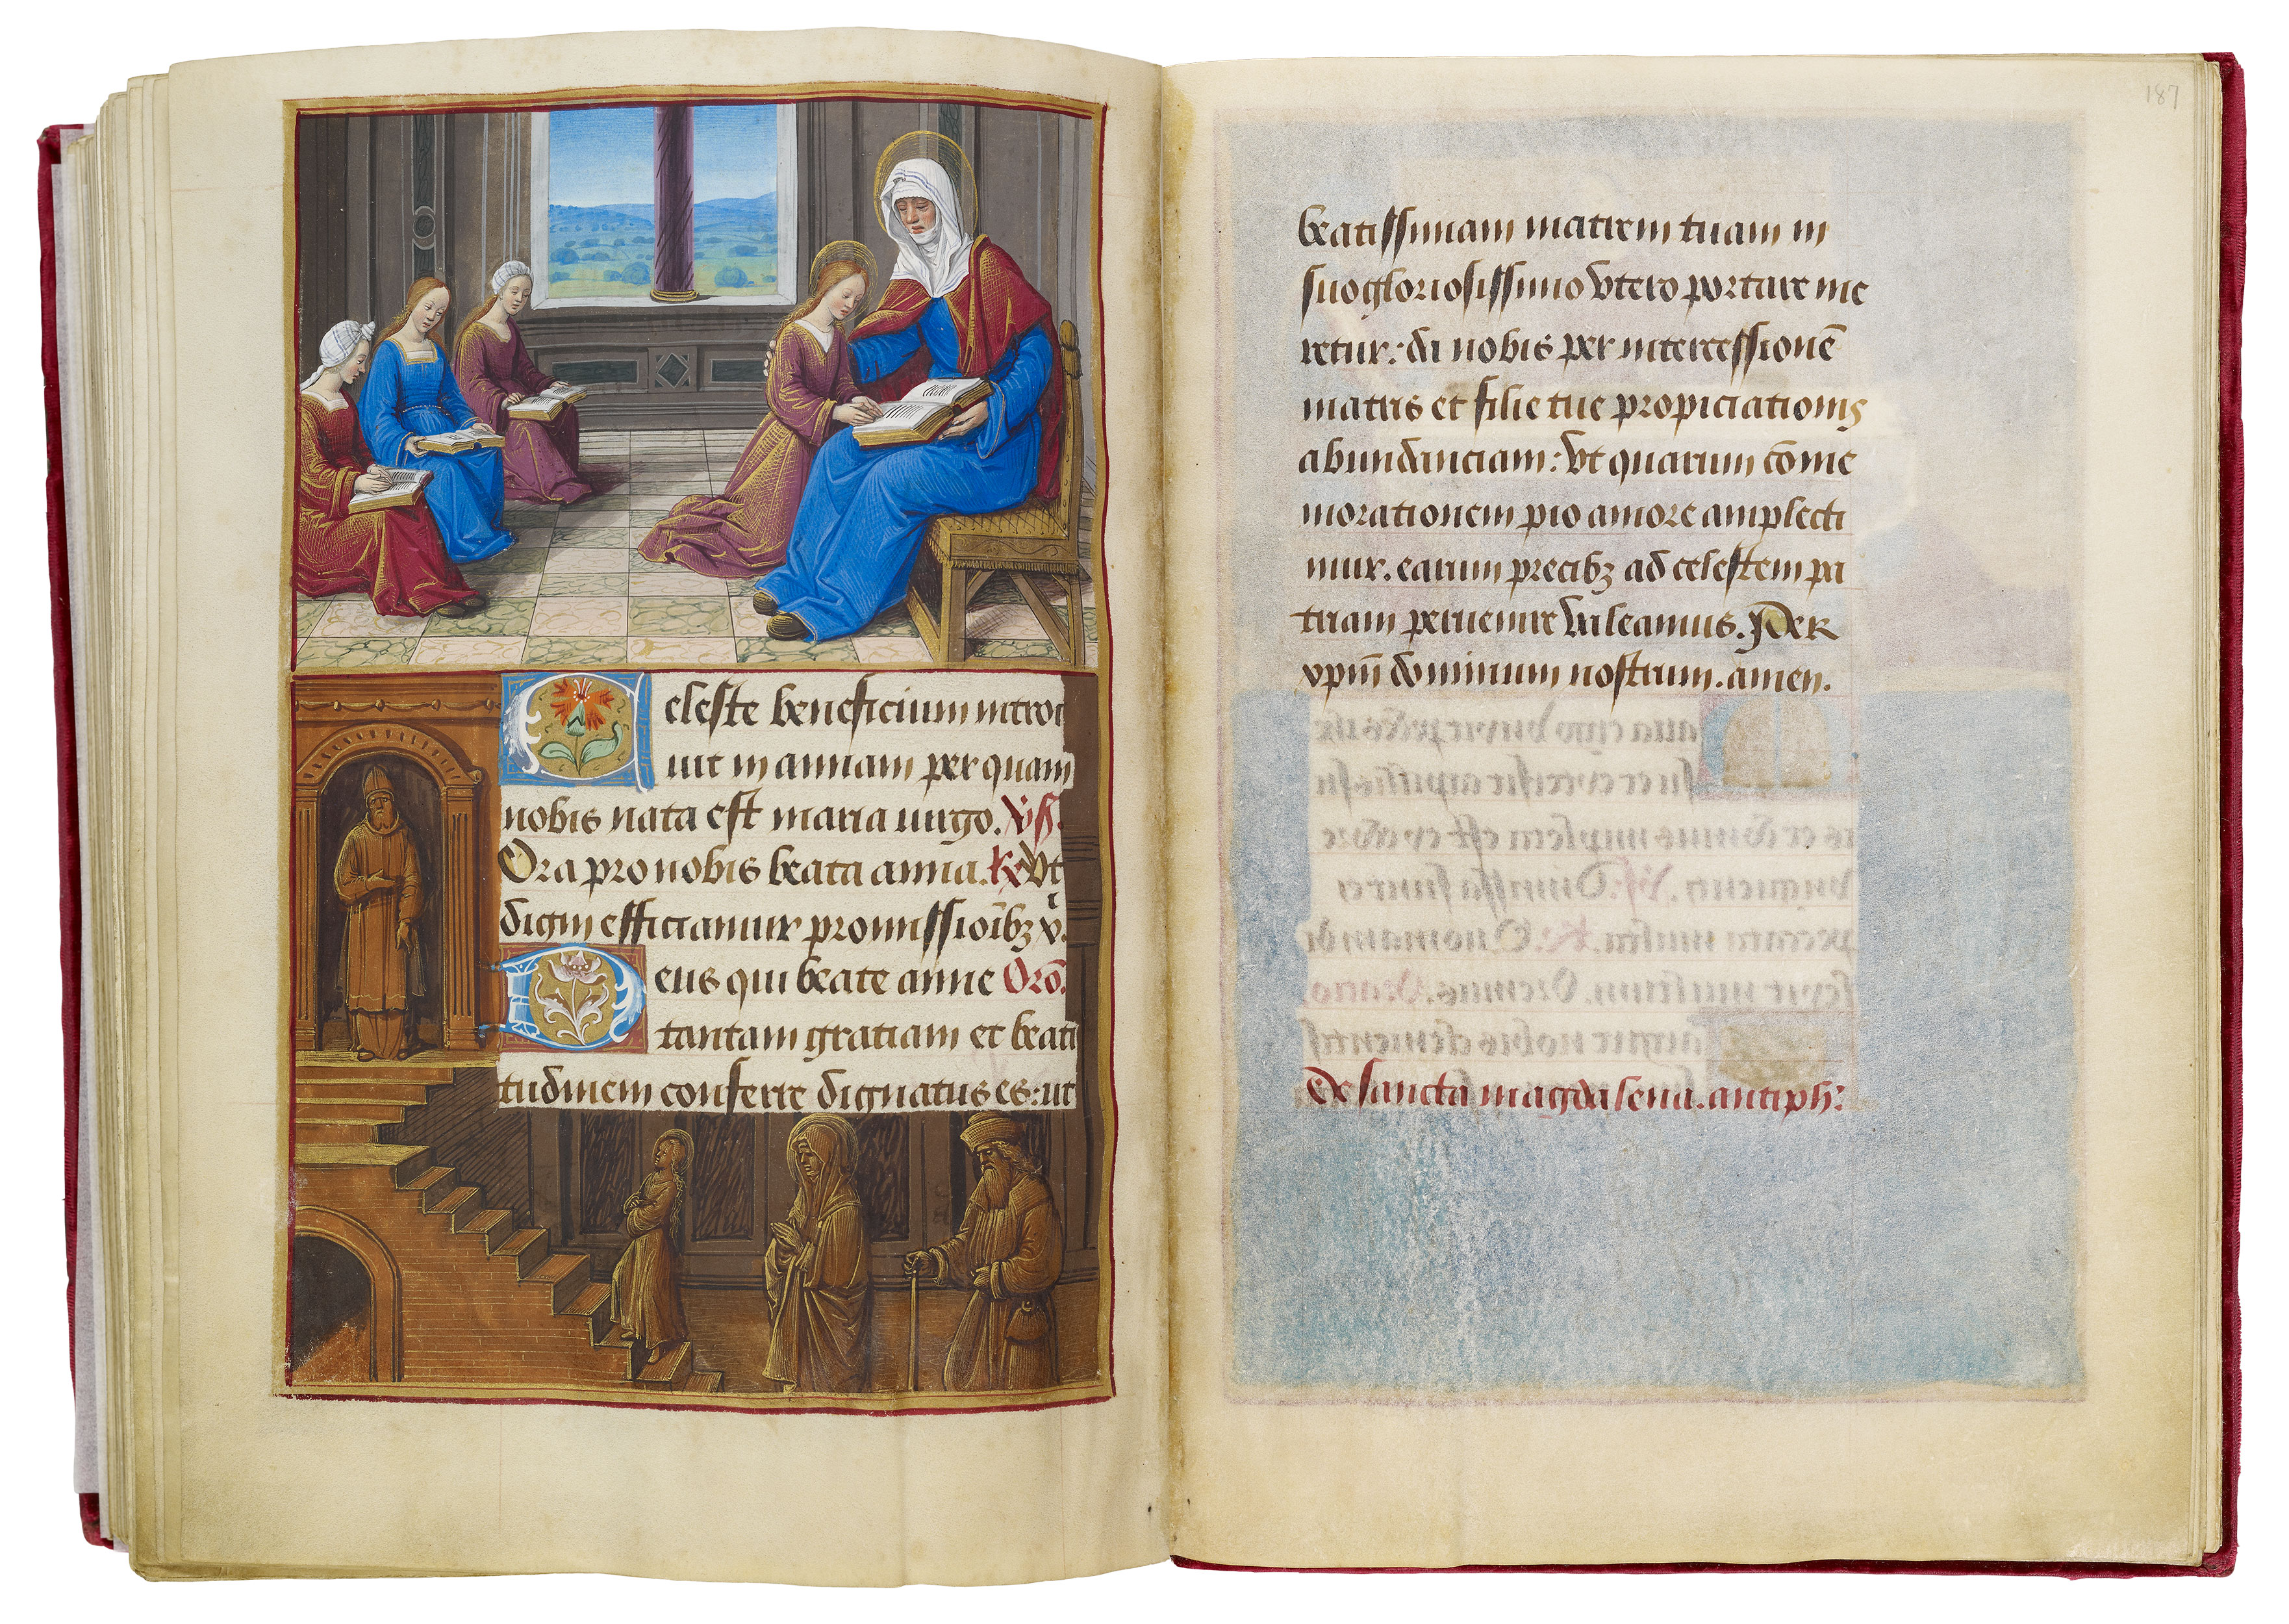 Celeste beneficium introi
uit in annam per quam
nobis nata est maria uirgo. Vs.
Ora pro nobis beata anna. R. Vt
digni efficiamur promissioībꝫ x̄.
Deus qui beate anne Orō.
tantam gratiam et beati
tudinem conferre dignatus es: ut
187
beatissimam matrem tuam in
suo gloriosissimo vtero portare me
retur: da nobis per intercessionē
matris et filie tue propiciationis
abundanciam: vt quarum cōme
morationem pio amore amplecti
mur. earum precibꝫ ad celestem pa
triam peruenire valeamus. Per
xpm̄ dominum nostrum. amen.
De sancta magdalena. antiph: